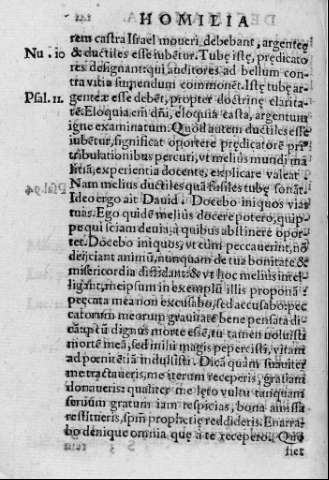 HOMILIA
rem castra Israel moueri debebant, argenteę
Nu. 10 & ductiles esse iubētur. Tubę istę, prędicato
res designant: qui auditores ad bellum con
tra vitia sumendum commonēt. Istę tubę ar-
Psal. 11. genteæ esse debēt, propter doctrinę claritatē
. Eloquia em̄ dn̄i, eloquia casta, argentum
igne examinatum. Quòd autem ductiles esse
iubētur, significat oportere prędicatorē pri
tribulationibus percuti, vt melius mundi ma
litiā, experientia docente, explicare valeat.
Nam melius ductiles quā fusiles tubę sonāt.
Ideo ergo ait Dauid. Docebo iniquos vias
tuas. Ego quidē melius docere potero, quip-
pe qui sciam deuia, à quibus abstinere opor-
tet. Docebo iniquos, vt cùm peccauerint, nō
deijciant animū, nunquam de tua bonitate &
misericordia diffidant: & vt hoc melius intel-
ligāt, meipsum in exemplū illis proponā:
peccata mea non excusabo, sed accusabo: pec
catorum meorum grauitate bene pensata di-
cā: ꝙ tū dignus morte essē, tu tamen noluisti
morté meā, sed mihi magis pepercisti, vitam
ad pœnitētiā indulsisti. Dicā quàm suauiter
me tractaueris, me iterum receperis, gratiam
donaueris: qualiter me lęto vultu tanquam
seruum gratum iam respicias, bona amissa
restitueris, spm̄ prophetię reddideris. Enarra-
bo denique omnia quę à te recepero. Quo
fiet